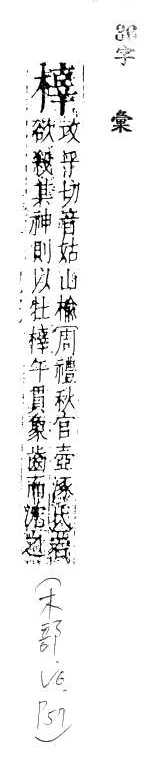 字彙
橭
攻乎切音姑山榆周禮秋官壺涿氏若
欲殺其神則以牡橭午貫象齒而沈之
(木部.V6.P57)